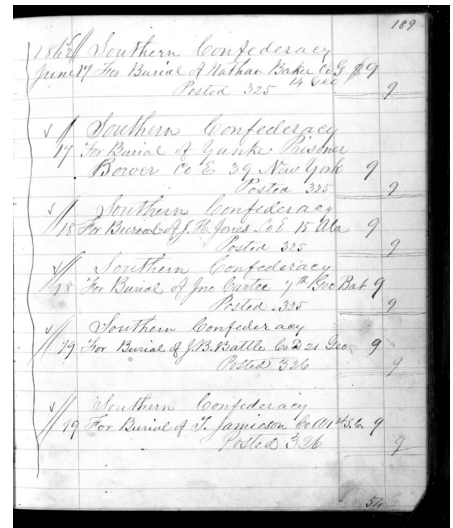 189
1862 Southern Confederacy
June 17 For Burial of Nathan Baker Co G $9
14 Geo
Posted 325 9
Southern Confederacy
17 For Burial of Yanke Prisoner
Bower Co E 39 New York 9
Posted 325 9
Southern Confederacy
18 For Burial of J. H. Jones Co E 15 Ala 9
Posted 325 9
Southern Confederacy
18 For Burial of Jno Carter 7th Geo Bat 9
Posted 325 9
Southern Confederacy
19 For Burial of J. B. Battle Co D 21 Geo 9
Posted 326 9
Southern Confederacy
19 For Burial of T. Jamieson Co A 1st S.C. 9
Posted 326 9
54